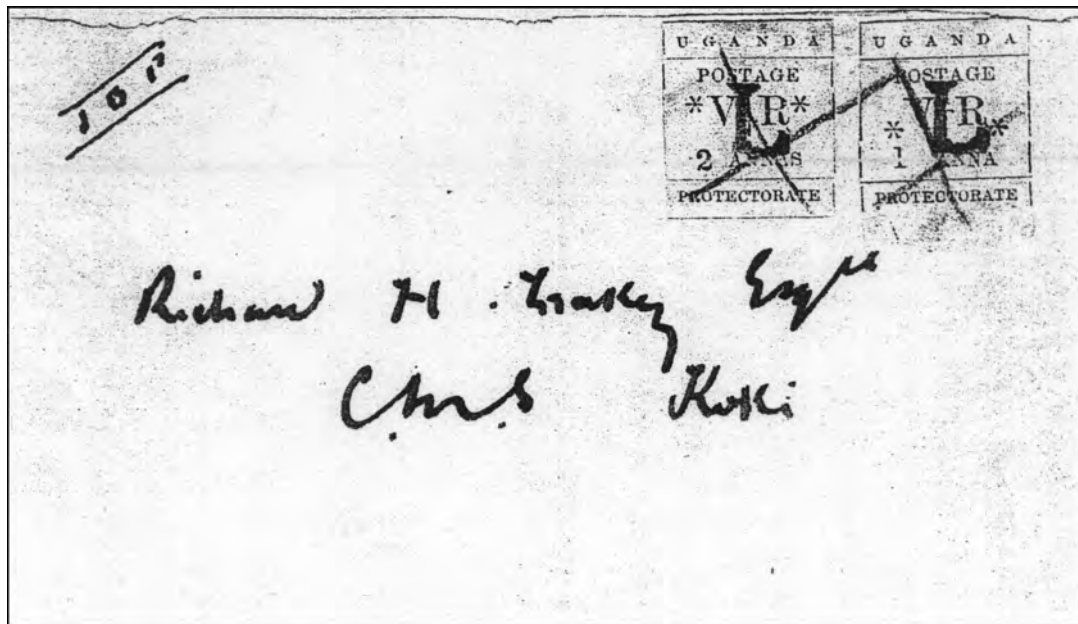 UGANDA
POSTAGE
* V R *
L
2 ANNAS
PROTECTORATE
UGANDA
POSTAGE
* V R *
L
1 ANNA
PROTECTORATE
Richard H. Leakey Esqre
C.M.S Koki